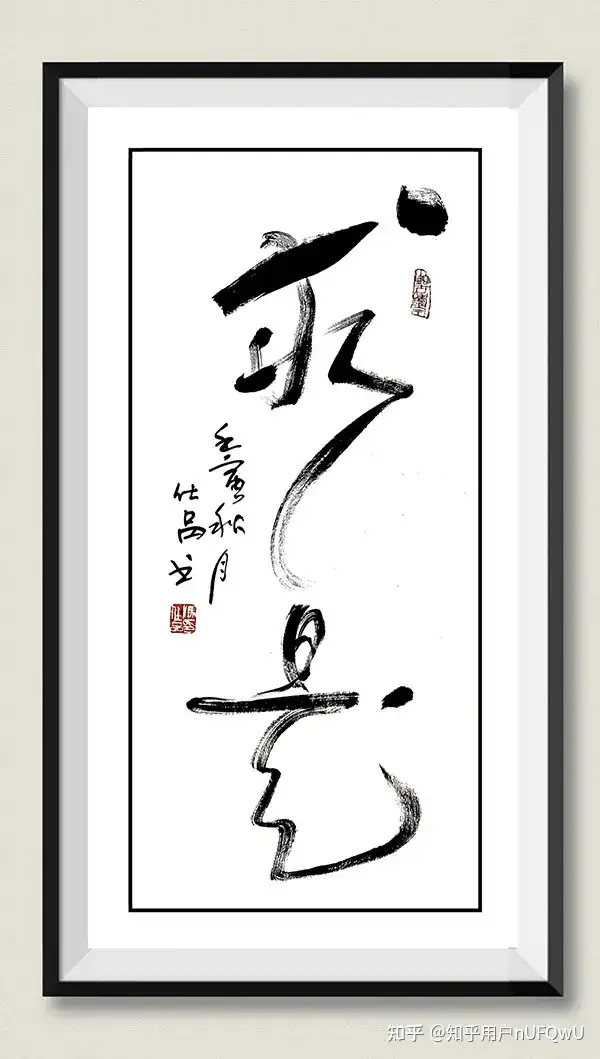 求是
壬寅秋月
仕昌书
知乎 @知乎用户nUFQwU